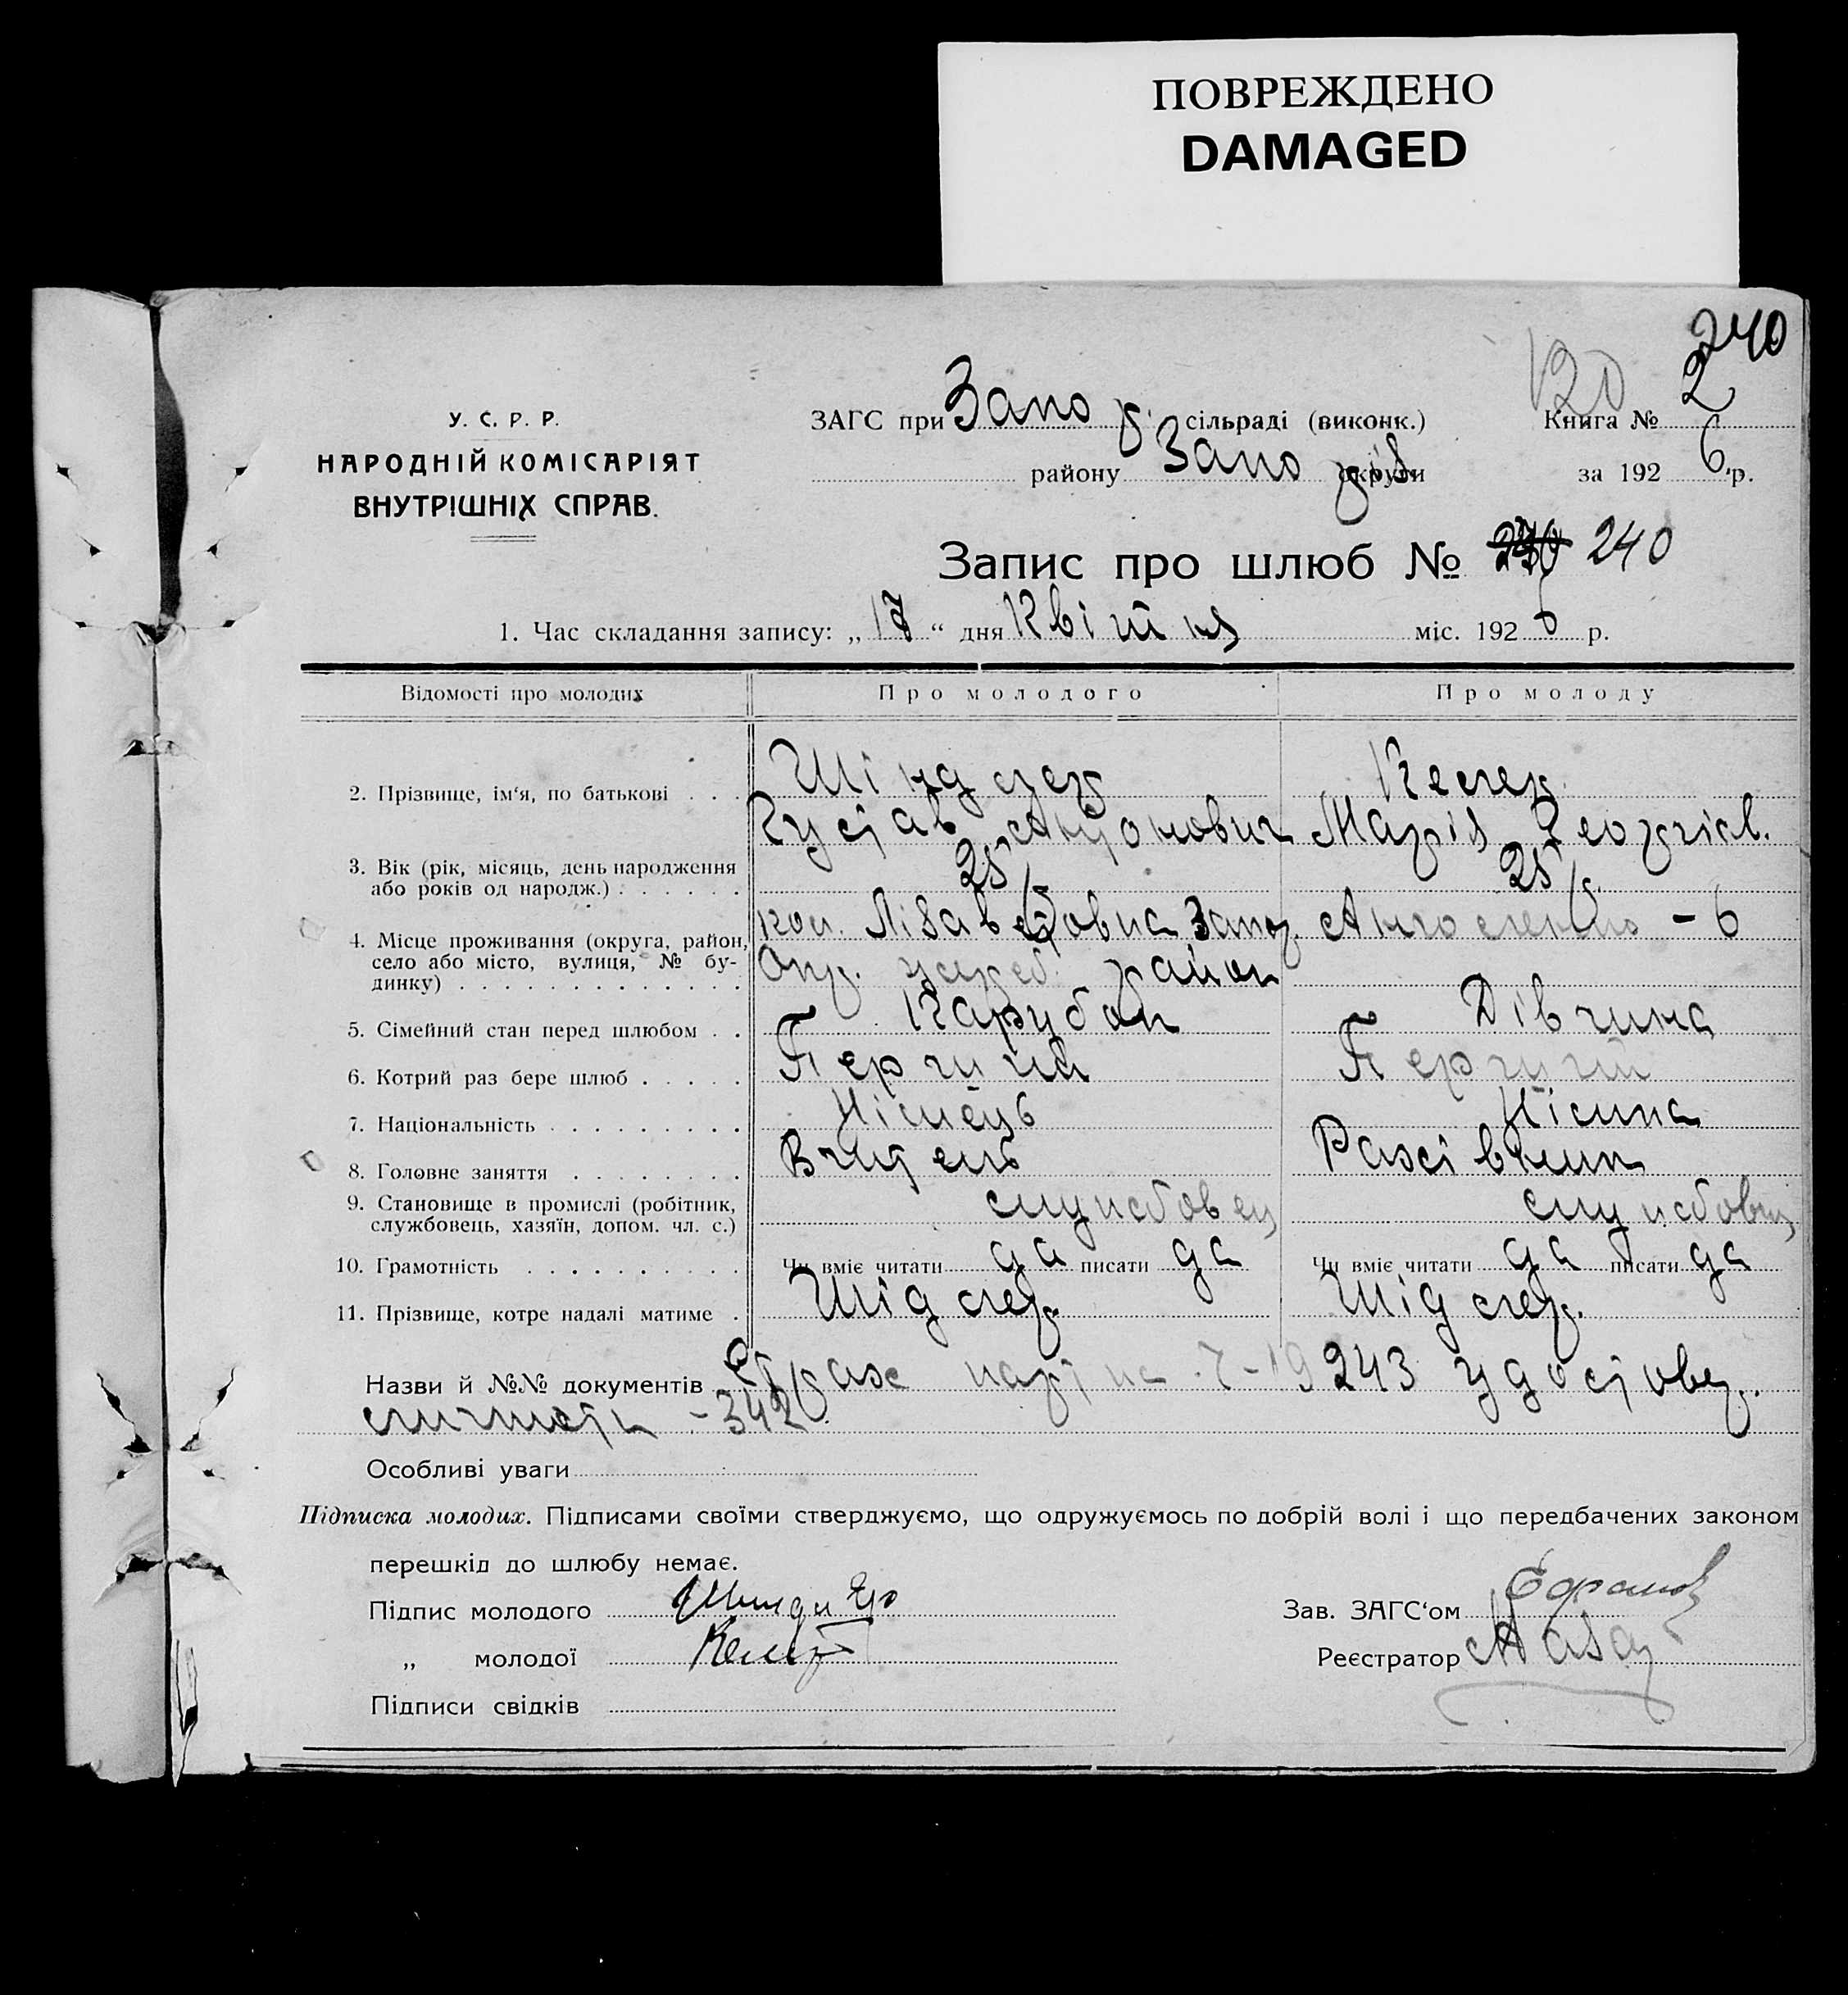 ПОВРЕЖДЕНО
DAMAGED
240
120
У. С. Р. Р.
НАРОДНІЙ КОМІСАРІЯТ
ВНУТРІШНІХ СПРАВ.
ЗАГС при Запор. сільраді (виконк.) Книга № 2
району Запоріз округи за 1926 р.
Запис про шлюб № 240
1. Час складання запису: „17“ дня Квітня міс. 1926 р.
Відомості про молодих Про молодого Про молоду
2. Прізвище, ім‘я, по батькові . . . Шіндлер Келер
Густав Антонович Марія Георгієв.
3. Вік (рік, місяць, день народження
або років од народж.) . . . . . . 25 р. 25 р.
4. Місце проживання (округа, район,
село або місто, вулиця, № бу-
динку) . . . . . . . . . . . . .
кол. Лізаветовка Запор. - 6
Окр. район
5. Сімейний стан перед шлюбом . . Парубок Дівчина
6. Котрий раз бере шлюб . . . . . Перший Перший
7. Національність . . . . . . . . . Німець Німка
8. Головне заняття . . . . . . . . Вчитель Рахівник
9. Становище в промислі (робітник,
службовець, хазяїн, допом. чл. с.) службовец службовец
10. Грамотність . . . . . . . . . . Чи вміє читати да писати да Чи вміє читати да писати да
11. Прізвище, котре надалі матиме . Шідлер. Шідлер.
Назви й №№ документів Страх карт на 7-19243 удостовер.
личности - 342
Особливі уваги
Підписка молодих. Підписами своїми стверджуємо, що одружуємось по добрій волі і що передбачених законом
перешкід до шлюбу немає.
Підпис молодого Шиндлер Зав. ЗАГС‘ом
„ молодої Келер Реєстратор
Підписи свідків